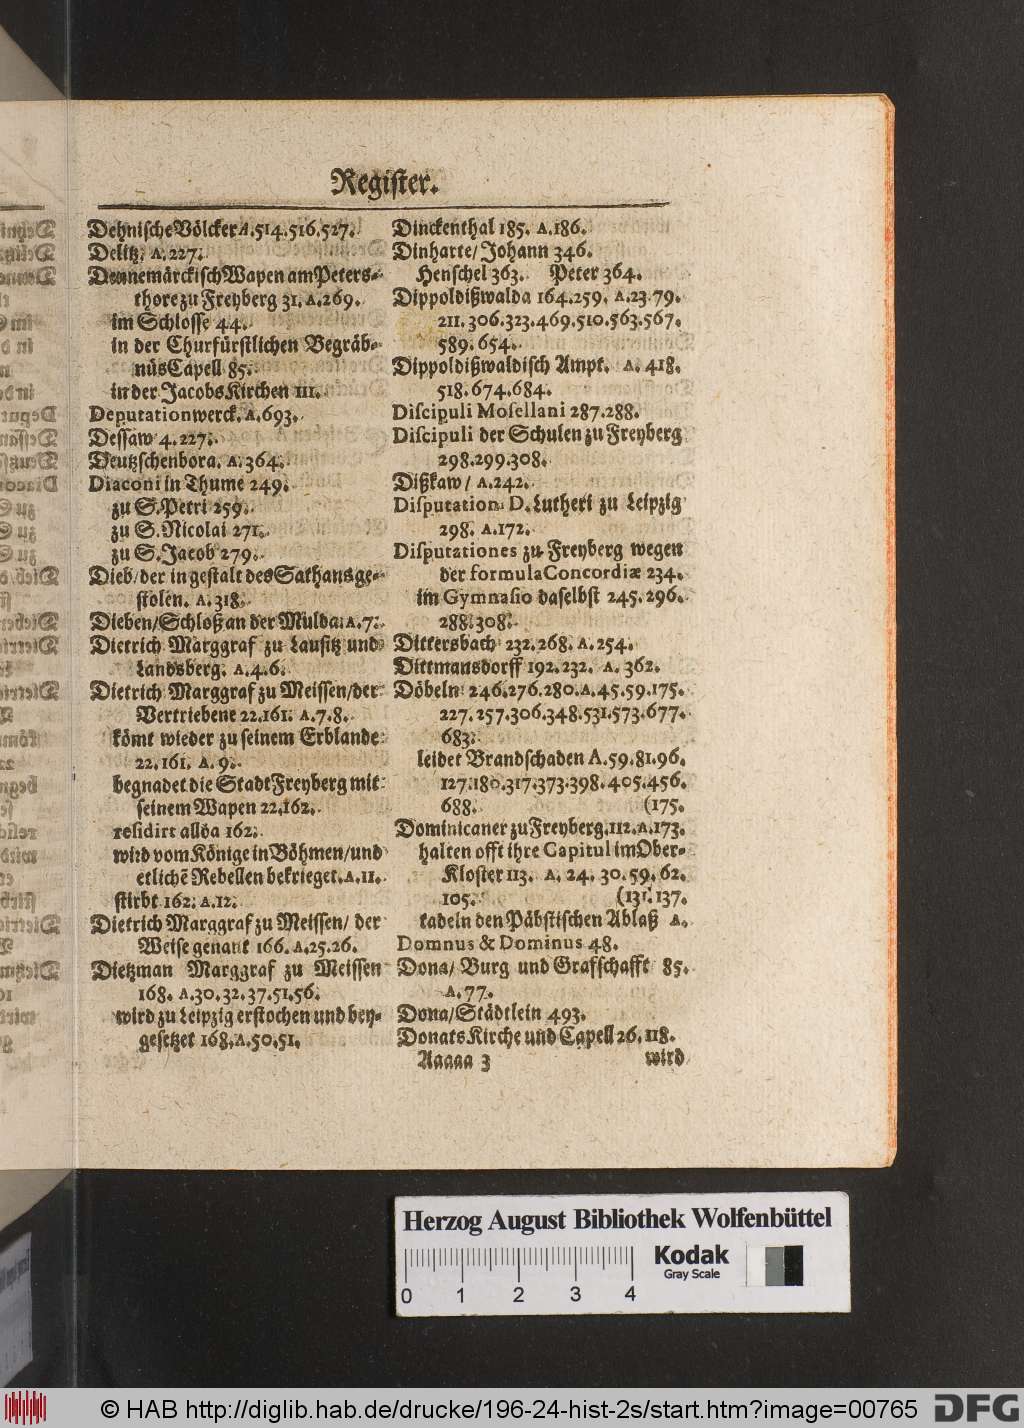 Register.
Dehnische Völcker A. 514. 516. 527.
Delitz. A. 227.
Dennemärckisch Wapen am Peters-
thore zu Freyberg 31. A. 269.
im Schlosse 44.
in der Churfürstlichen Begräb-
nüs Capell 85.
in der Jacobs Kirchen 111.
Deputationwerck. A. 693.
Dessaw 4. 227.
Deutzschenbora. A. 364.
Diaconi in Thume 249.
zu S. Petri 259.
zu S. Nicolai 271.
zu S. Jacob 279.
Dieb/ der in gestalt des Sathans ge-
stolen. A. 318.
Dieben/ Schloß an der Mulda. A. 7.
Dietrich Marggraf zu Lausitz und
Landsberg. A. 4. 6.
Dietrich Marggraf zu Meissen/ der
Vertriebene 22. 161. A. 7. 8.
kömt wieder zu seinem Erblande
22. 161. A. 9.
begnadet die Stadt Freyberg mit
seinem Wapen 22. 162.
residirt alloa 162.
wird vom Könige in Böhmen/ und
etlichẽ Rebellen bekrieget. A. 11.
stirbt 162. A. 12.
Dietrich Marggraf zu Meissen/ der
Weise genant 166. A. 25. 26.
Dietzman Marggraf zu Meissen
168. A. 30. 32. 37. 51. 56.
wird zu Leipzig erstochen und bey-
gesetzet 168. A. 50. 51.
Dinckenthal 185. A. 186.
Dinharte/ Johann 346.
Henschel 363. Peter 364.
Dippoldißwalda 164. 259. A. 23. 79.
211. 306. 323. 469. 510. 563. 567.
589. 654.
Dippoldißwaldisch Ampt. A. 418.
518. 674. 684.
Discipuli Mosellani 287. 288.
Discipuli der Schulen zu Freyberg
298. 299. 308.
Dißkaw/ A. 242.
Disputation D. Lutheri zu Leipzig
298. A. 172.
Disputationes zu Freyberg wegen
der formula Concordiæ 234.
im Gymnasio daselbst 245. 296.
288. 308.
Dittersbach 232. 268. A. 254.
Dittmansdorff 192. 232. A. 362.
Döbeln 246. 276. 280. A. 45. 59. 175.
227. 257. 306. 348. 531. 573. 677.
683.
leidet Brandschaden A. 59. 81. 96.
127. 180. 317. 373. 398. 405. 456.
688. (175.
Dominicaner zu Freyberg. 112. A. 173.
halten offt ihre Capitul im Ober-
Kloster 113. A. 24. 30. 59. 62.
105. (131. 137.
tadeln den Päbstischen Ablaß A.
Domnus & Dominus 48.
Dona/ Burg und Grafschafft 85.
A. 77.
Dona/ Städtlein 493.
Donats Kirche und Capell 26. 118.
Aaaaa 3 wird
Herzog August Bibliothek Wolfenbüttel
Kodak
Gray Scale
0 1 2 3 4
© HAB http://diglib.hab.de/drucke/196-24-hist-2s/start.htm?image=00765
DFG